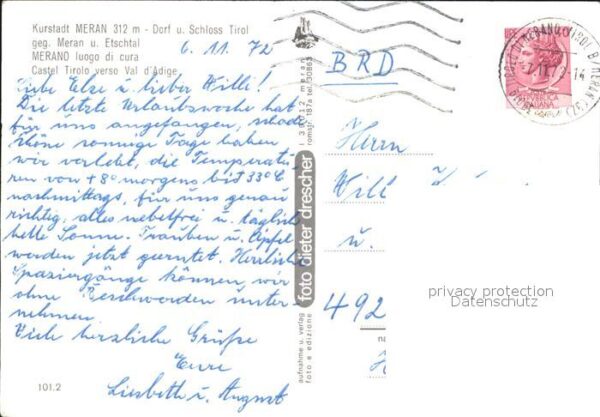 Kurstadt MERAN 312 m - Dorf u. Schloss Tirol
geg. Meran u. Etschtal
MERANO luogo di cura
Castel Tirolo verso Val d'Adige
6. 11. 72
Liebe Else u. lieber Willi!
Die letzte Urlaubswoche hat
für uns angefangen, schade
schöne sonnige Tage haben
wir verlebt, die Temperatu
ren von +8° morgens bis 33°C
nachmittags, für uns genau
richtig, alles nebelfrei u. täglich
helle Sonne. Trauben u. Äpfel
werden jetzt geerntet. Herrliche
Spaziergänge können wir
ohne Beschwerden unter-
nehmen.
Viele herzliche Grüße
Eure
Liesbeth u. August
101.2
foto dieter drescher
aufnahme u. verlag
foto e edizione
I 39012 meran
romstr. 187a tel.
BRD
Herrn
Will
u.
492
privacy protection
Datenschutz
ITALIANA